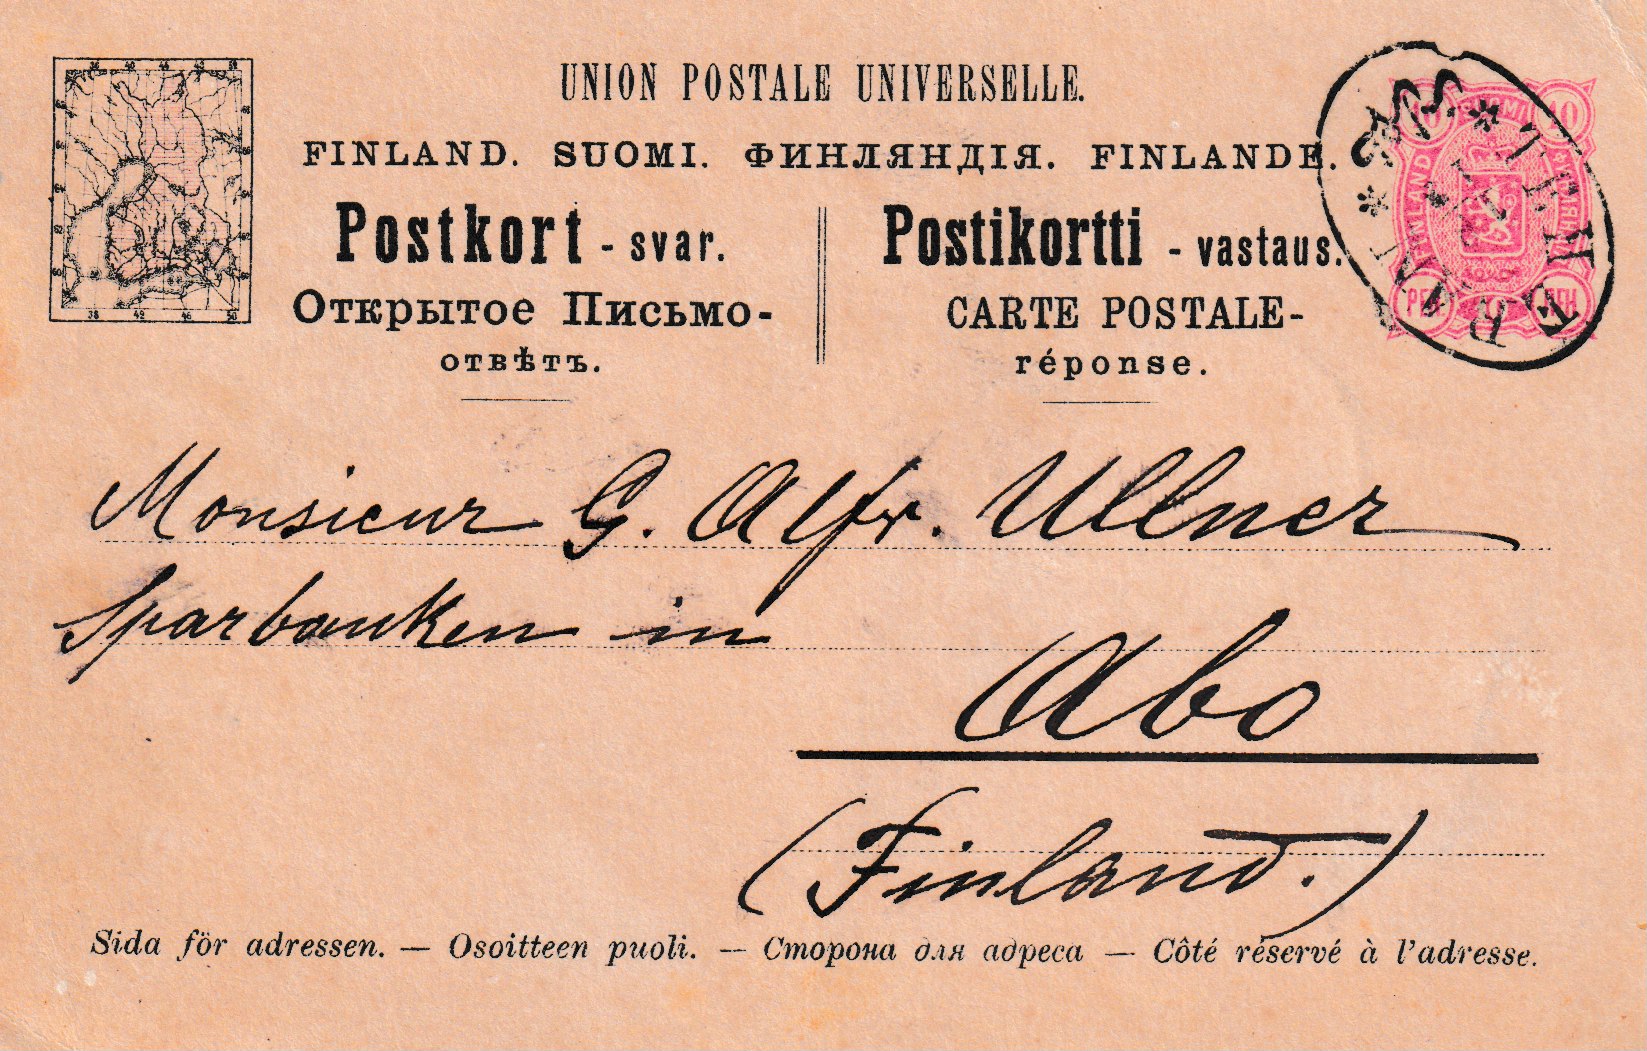 UNION POSTALE UNIVERSELLE.
FINLAND. SUOMI. ФИНЛЯНДІЯ. FINLANDE.
Postkort - svar.
Открытое Письмо-
отвѣтъ.
Postikortti - vastaus.
CARTE POSTALE-
réponse.
10 10
FINLAND
PEN
Monsieur G. Alfr. Ullner
Sparbanken in
Abo
(Finland.)
Sida för adressen. — Osoitteen puoli. — Сторона для адреса — Côté réservé à l'adresse.